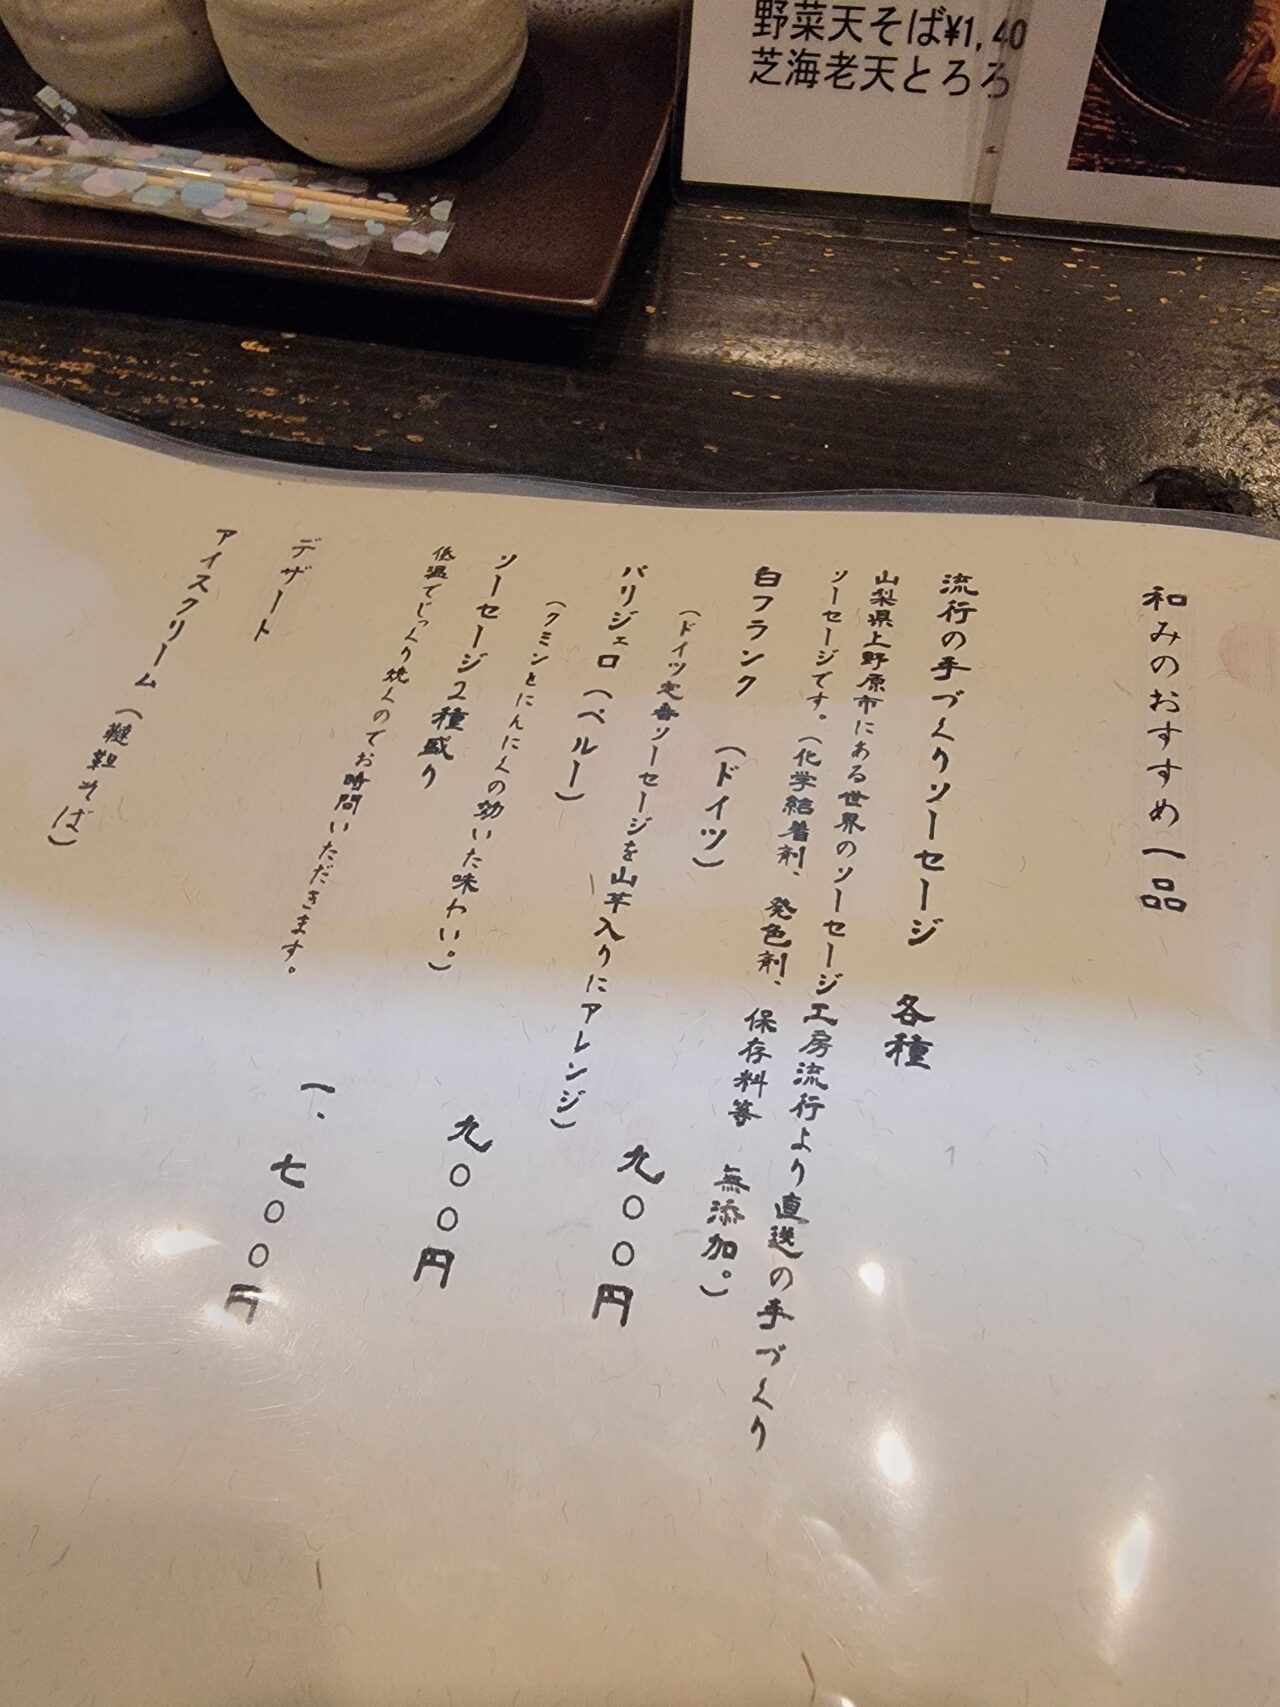 野菜天そば¥1,40
芝海老天とろろ
和みのおすすめ一品
流行の手づくりソーセージ 各種
山梨県上野原市にある世界のソーセージ工房流行より直送の手づくり
ソーセージです。（化学結着剤、発色剤、保存料等 無添加。）
白フランク （ドイツ） 九〇〇円
（ドイツ定番ソーセージを山芋入りにアレンジ）
パリジェロ（ペルー） 九〇〇円
（クミンとにんにくの効いた味わい。）
ソーセージ2種盛り 一、七〇〇円
低温でじっくり焼くのでお時間いただきます。
デザート
アイスクリーム（韃靼そば）